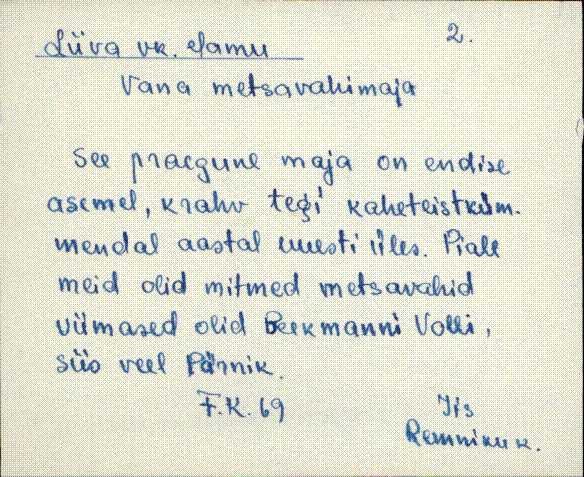 Liiva vk. elamu
2.
Vana metsavahimaja
See praegune maja on endise
asemel, krahv tegi kaheteistküm-
mendal aastal uuesti üles. Piale
meid olid mitmed metsavahid
viimased olid Beekmanni Volli,
siis veel Pärnik.
F.K. 69
Iis
Remniku k.